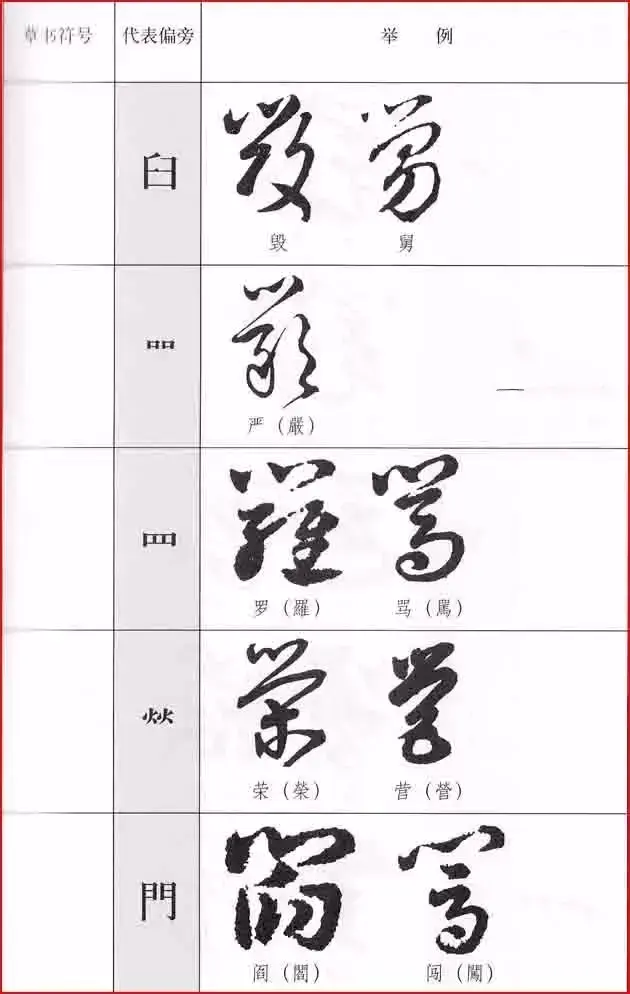 草书符号 代表偏旁 举 例
臼
毁 舅
吅
严（嚴）
罒
罗（羅） 骂（罵）
𤇾
荣（榮） 营（營）
門
阎（閻） 闯（闖）